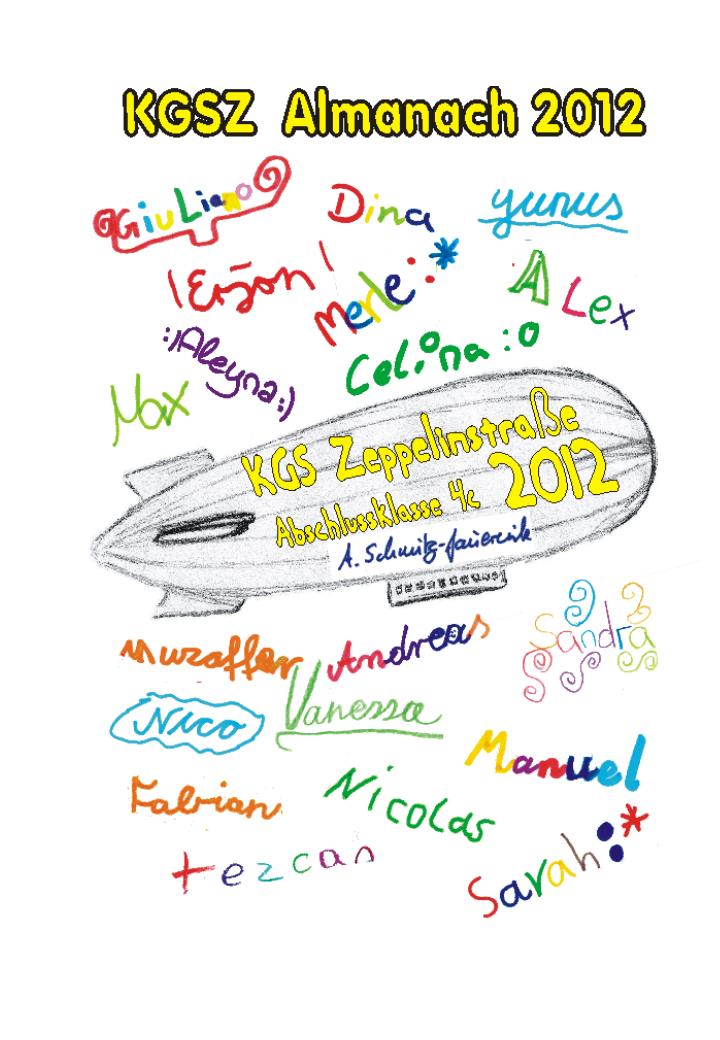 KGSZ Almanach 2012
GiuLiano Dina yunus
!Ersön! Merle:* ALex
:)Aleyna:) Celina:o
Max
KGS Zeppelinstraße
Abschlussklasse 4c 2012
A. Schmitz-
Muzaffer Andreas Sandra
Nico Vanessa
Manuel
Fabian Nicolas
tezcan Sarah:*